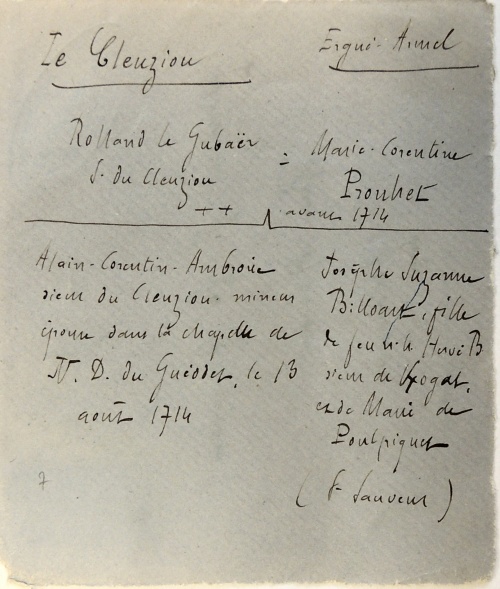 Le Cleuziou
Ergué-Armel
Rolland le Gubaër
Sr du Cleuziou
++
=
Marie-Corentine
Prouhet
avant 1714
Alain-Corentin-Ambroise
sieur du Cleuziou - mineur
épouse dans la chapelle de
N. D. du Guéodet, le 13
août 1714
Josèphe Suzanne
Billoart, fille
de feu n.h. Hervé B
sieur de
et de Marie de
Poulpiquet
(St Sauveur)
7